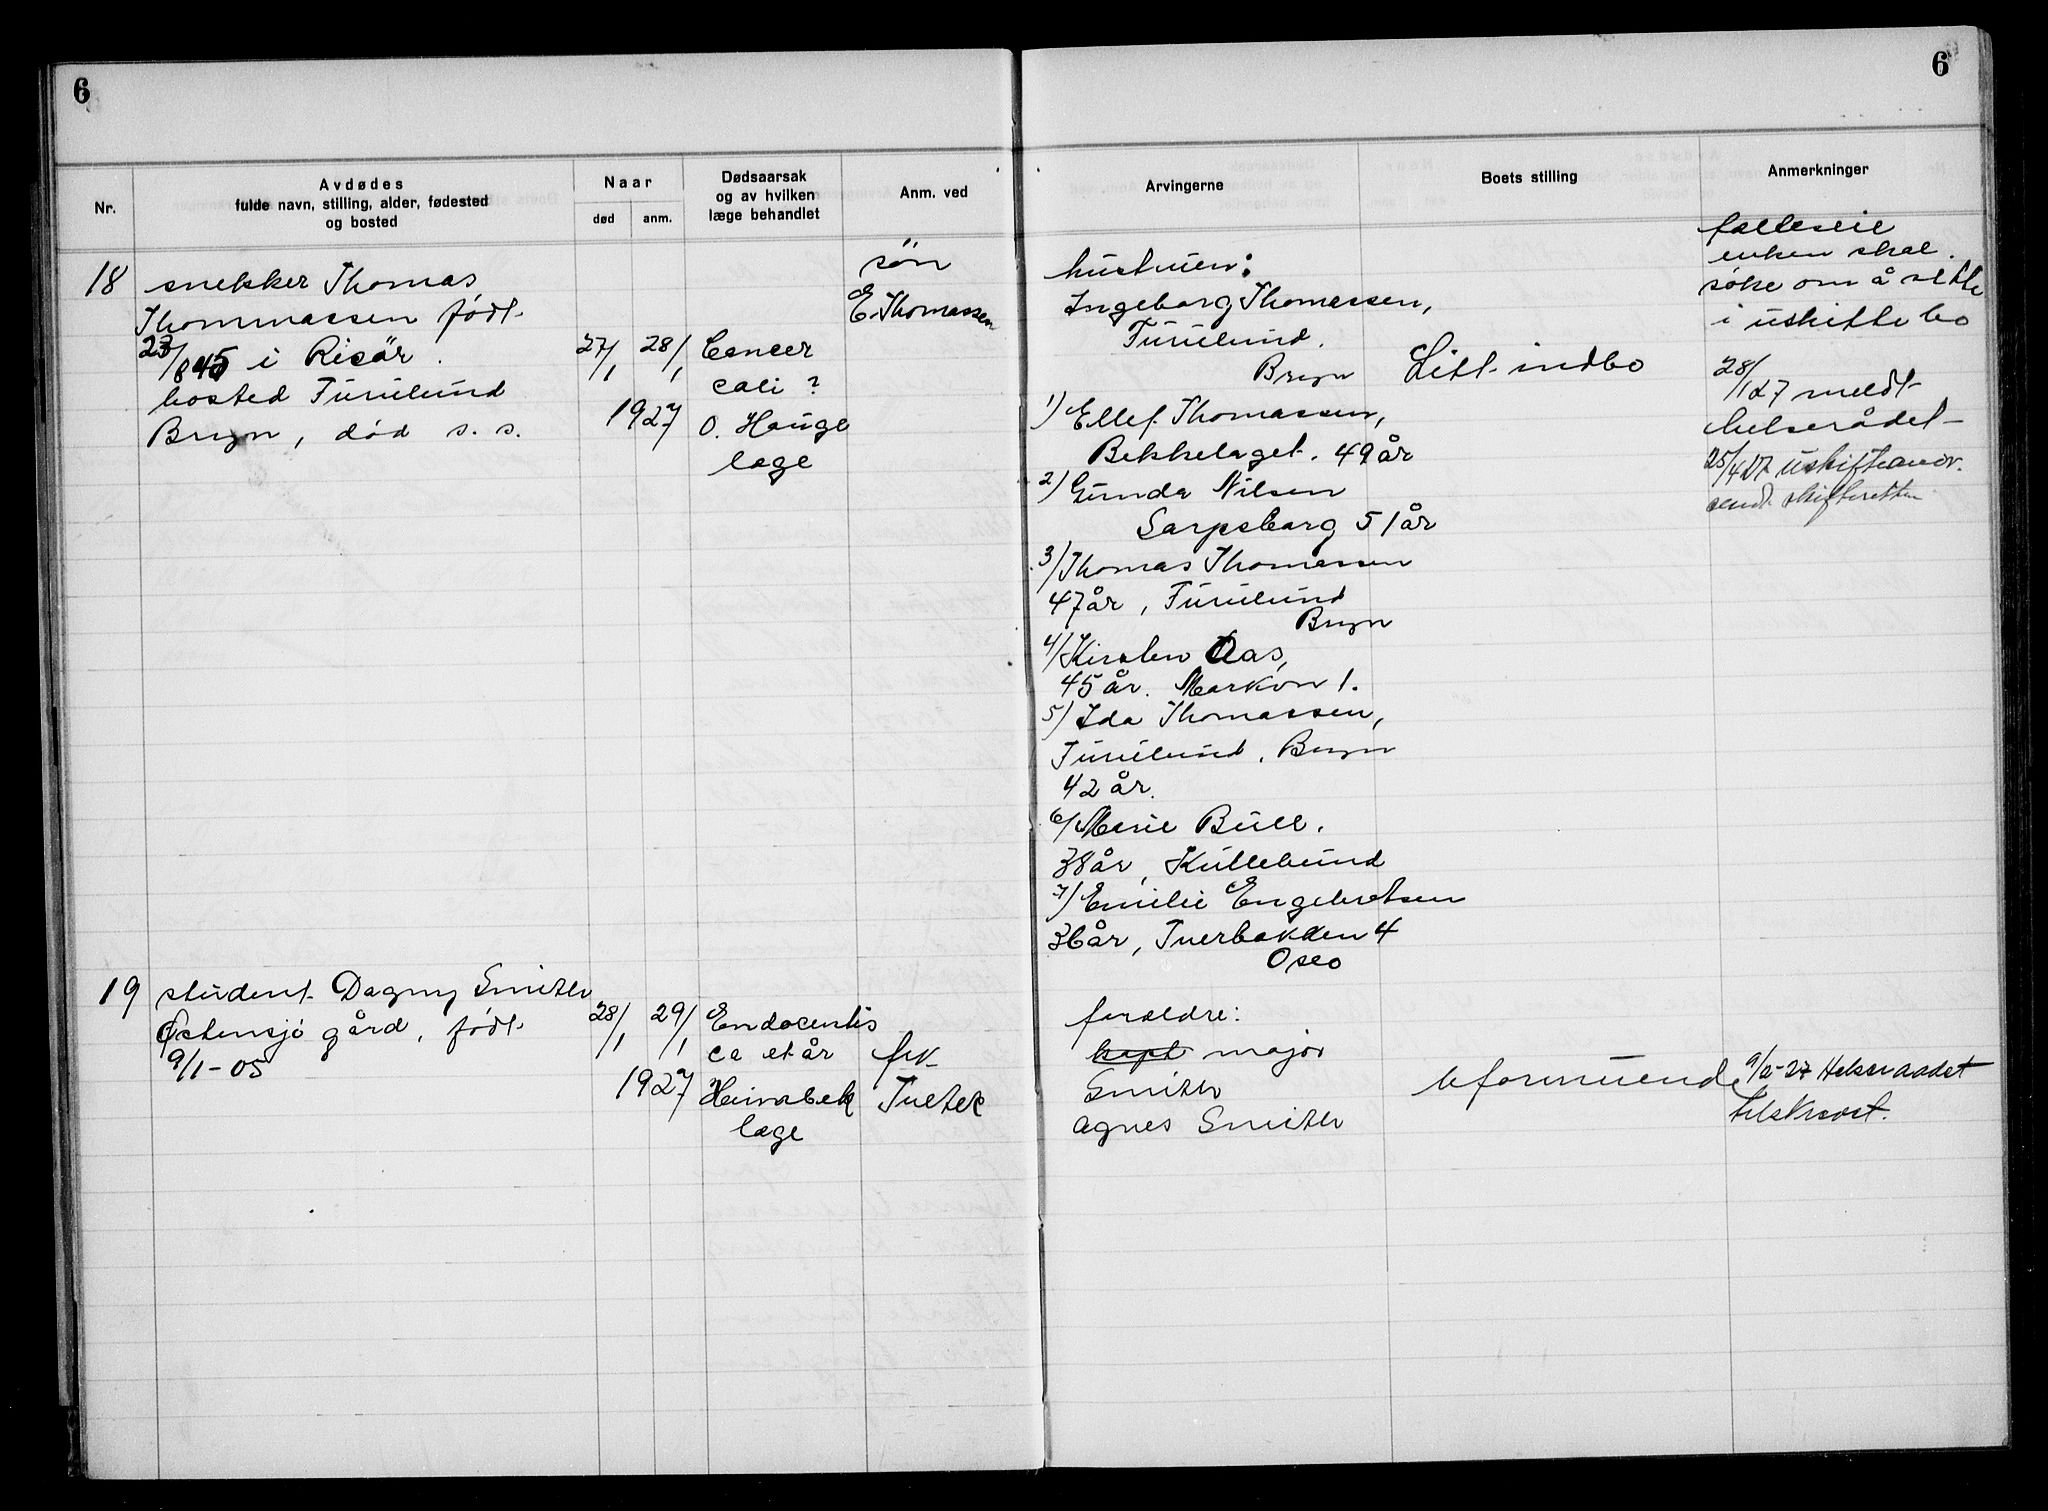 6
6
Nr.
Avdødes
fulde navn, stilling, alder, fødested
og bosted
Naar
død
anm.
Dødsaarsak
og av hvilken
læge behandlet
Anm. ved
Arvingerne
Boets stilling
Anmerkninger
18
snekker Thomas
Thommassen født
23/8 45 i Risör.
bosted Furulund
Bryn, död s. s.
27/1
28/1
1927
Cancer
coli ?
O. Hauge
læge
sön
E. Thomassen
hustruen:
Ingeborg Thomassen,
Furulund.
Bryn
1) Ellef Thomassen,
Bekkelaget. 49 år
2) Gunda Nilsen
Sarpsborg 51 år
3) Thomas Thomassen
47 år, Furulund
Bryn
4) Kirsten Aas,
45 år. Markvn 1.
5) Ida Thomassen,
Furulund. Bryn
42 år.
6) Marie Bull.
38 år, Kullebund
7) Emilie Engebretsen
36 år, Tverbakken 4
Oslo
Litt indbo
fælleseie
enken skal
söke om å sitte
i uskifte bo
28/1 27 meldt
helserådet
25/4 27 uskifteanor.
sendt skifteretten
19
student Dagny Smith
Østensjö gård, født
9/1-05
28/1
29/1
1927
Endocentis
ca et år
Heimbek
læge
frk
Tveter
foreldre:
kapt major
Smith
Agnes Smith
uformuende
9/2-27 Helseraadet
tilskrevet.